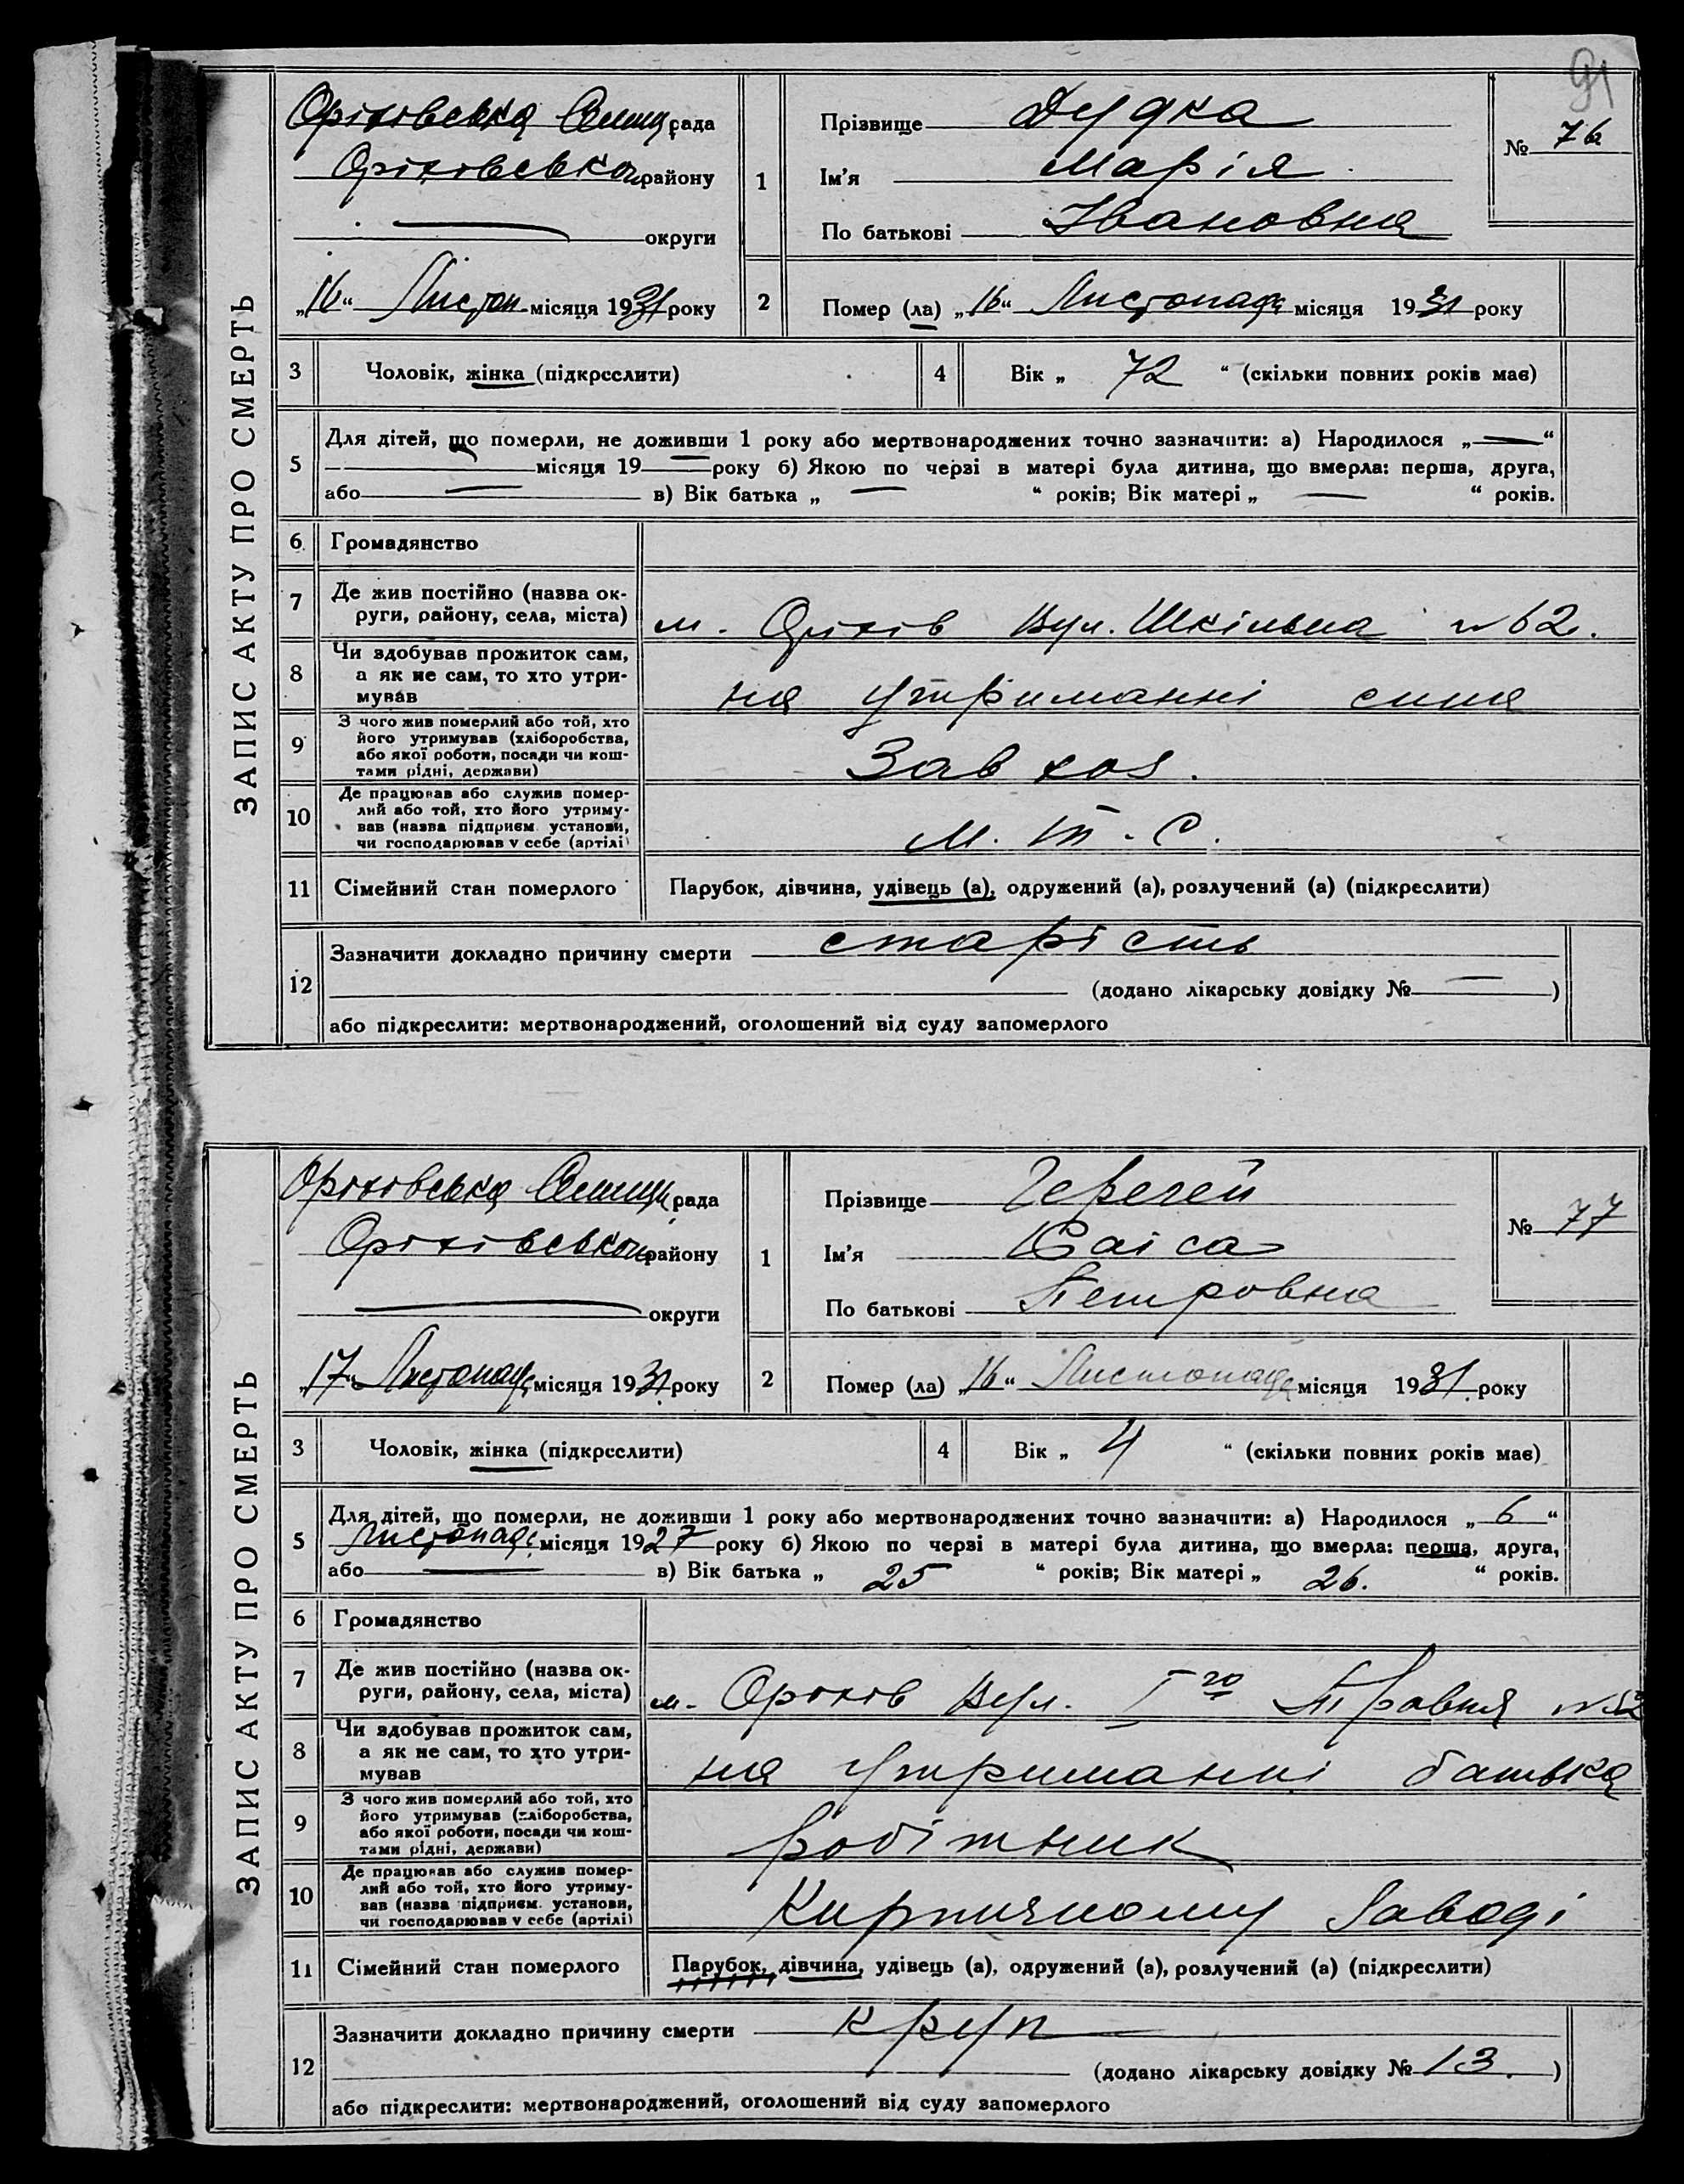 91
ЗАПИС АКТУ ПРО СМЕРТЬ
Оріховська Селищ рада
Оріхівського району
— округи
„16“ Листоп місяця 1931 року
1
Прізвище Дудка
Ім'я Марія
По батькові Івановна
№ 76
2
Помер (ла) „16“ Листопада місяця 1931 року
3 Чоловік, жінка (підкреслити)
4 Вік „ 72 “ (скільки повних років має)
5 Для дітей, що померли, не доживши 1 року або мертвонароджених точно зазначити: а) Народилося „—“
— місяця 19 — року б) Якою по черзі в матері була дитина, що вмерла: перша, друга,
або — в) Вік батька „ — “ років; Вік матері „ — “ років.
6 Громадянство
7 Де жив постійно (назва ок-
руги, району, села, міста)
м. Оріхів Вул. Шкільна № 62.
8 Чи здобував прожиток сам,
а як не сам, то хто утри-
мував
на утриманні сина
9 З чого жив померлий або той, хто
його утримував (хліборобства,
або якої роботи, посади чи кош-
тами рідні, держави)
Зав хоз.
10 Де працював або служив помер-
лий або той, хто його утриму-
вав (назва підприєм. установи,
чи господарював у себе (артілі)
М. Т. С.
11 Сімейний стан померлого Парубок, дівчина, удівець (а), одружений (а), розлучений (а) (підкреслити)
12 Зазначити докладно причину смерти старість
(додано лікарську довідку № — )
або підкреслити: мертвонароджений, оголошений від суду запомерлого
ЗАПИС АКТУ ПРО СМЕРТЬ
Оріховська Селищ рада
Оріхівського району
— округи
„17“ Листопада місяця 1931 року
1
Прізвище
Ім'я Раіса
По батькові Петровна
№ 77
2
Помер (ла) „16“ Листопада місяця 1931 року
3 Чоловік, жінка (підкреслити)
4 Вік „ 4 “ (скільки повних років має)
5 Для дітей, що померли, не доживши 1 року або мертвонароджених точно зазначити: а) Народилося „ 6 “
Листопада місяця 1927 року б) Якою по черзі в матері була дитина, що вмерла: перша, друга,
або — в) Вік батька „ 25 “ років; Вік матері „ 26. “ років.
6 Громадянство
7 Де жив постійно (назва ок-
руги, району, села, міста)
м. Оріхів Вул. I го Травня №
8 Чи здобував прожиток сам,
а як не сам, то хто утри-
мував
на утриманні батька
9 З чого жив померлий або той, хто
його утримував (хліборобства,
або якої роботи, посади чи кош-
тами рідні, держави)
робітник
10 Де працював або служив помер-
лий або той, хто його утриму-
вав (назва підприєм. установи,
чи господарював у себе (артілі)
Кирпичному Заводі
11 Сімейний стан померлого Парубок, дівчина, удівець (а), одружений (а), розлучений (а) (підкреслити)
12 Зазначити докладно причину смерти круп
(додано лікарську довідку № 13. )
або підкреслити: мертвонароджений, оголошений від суду запомерлого